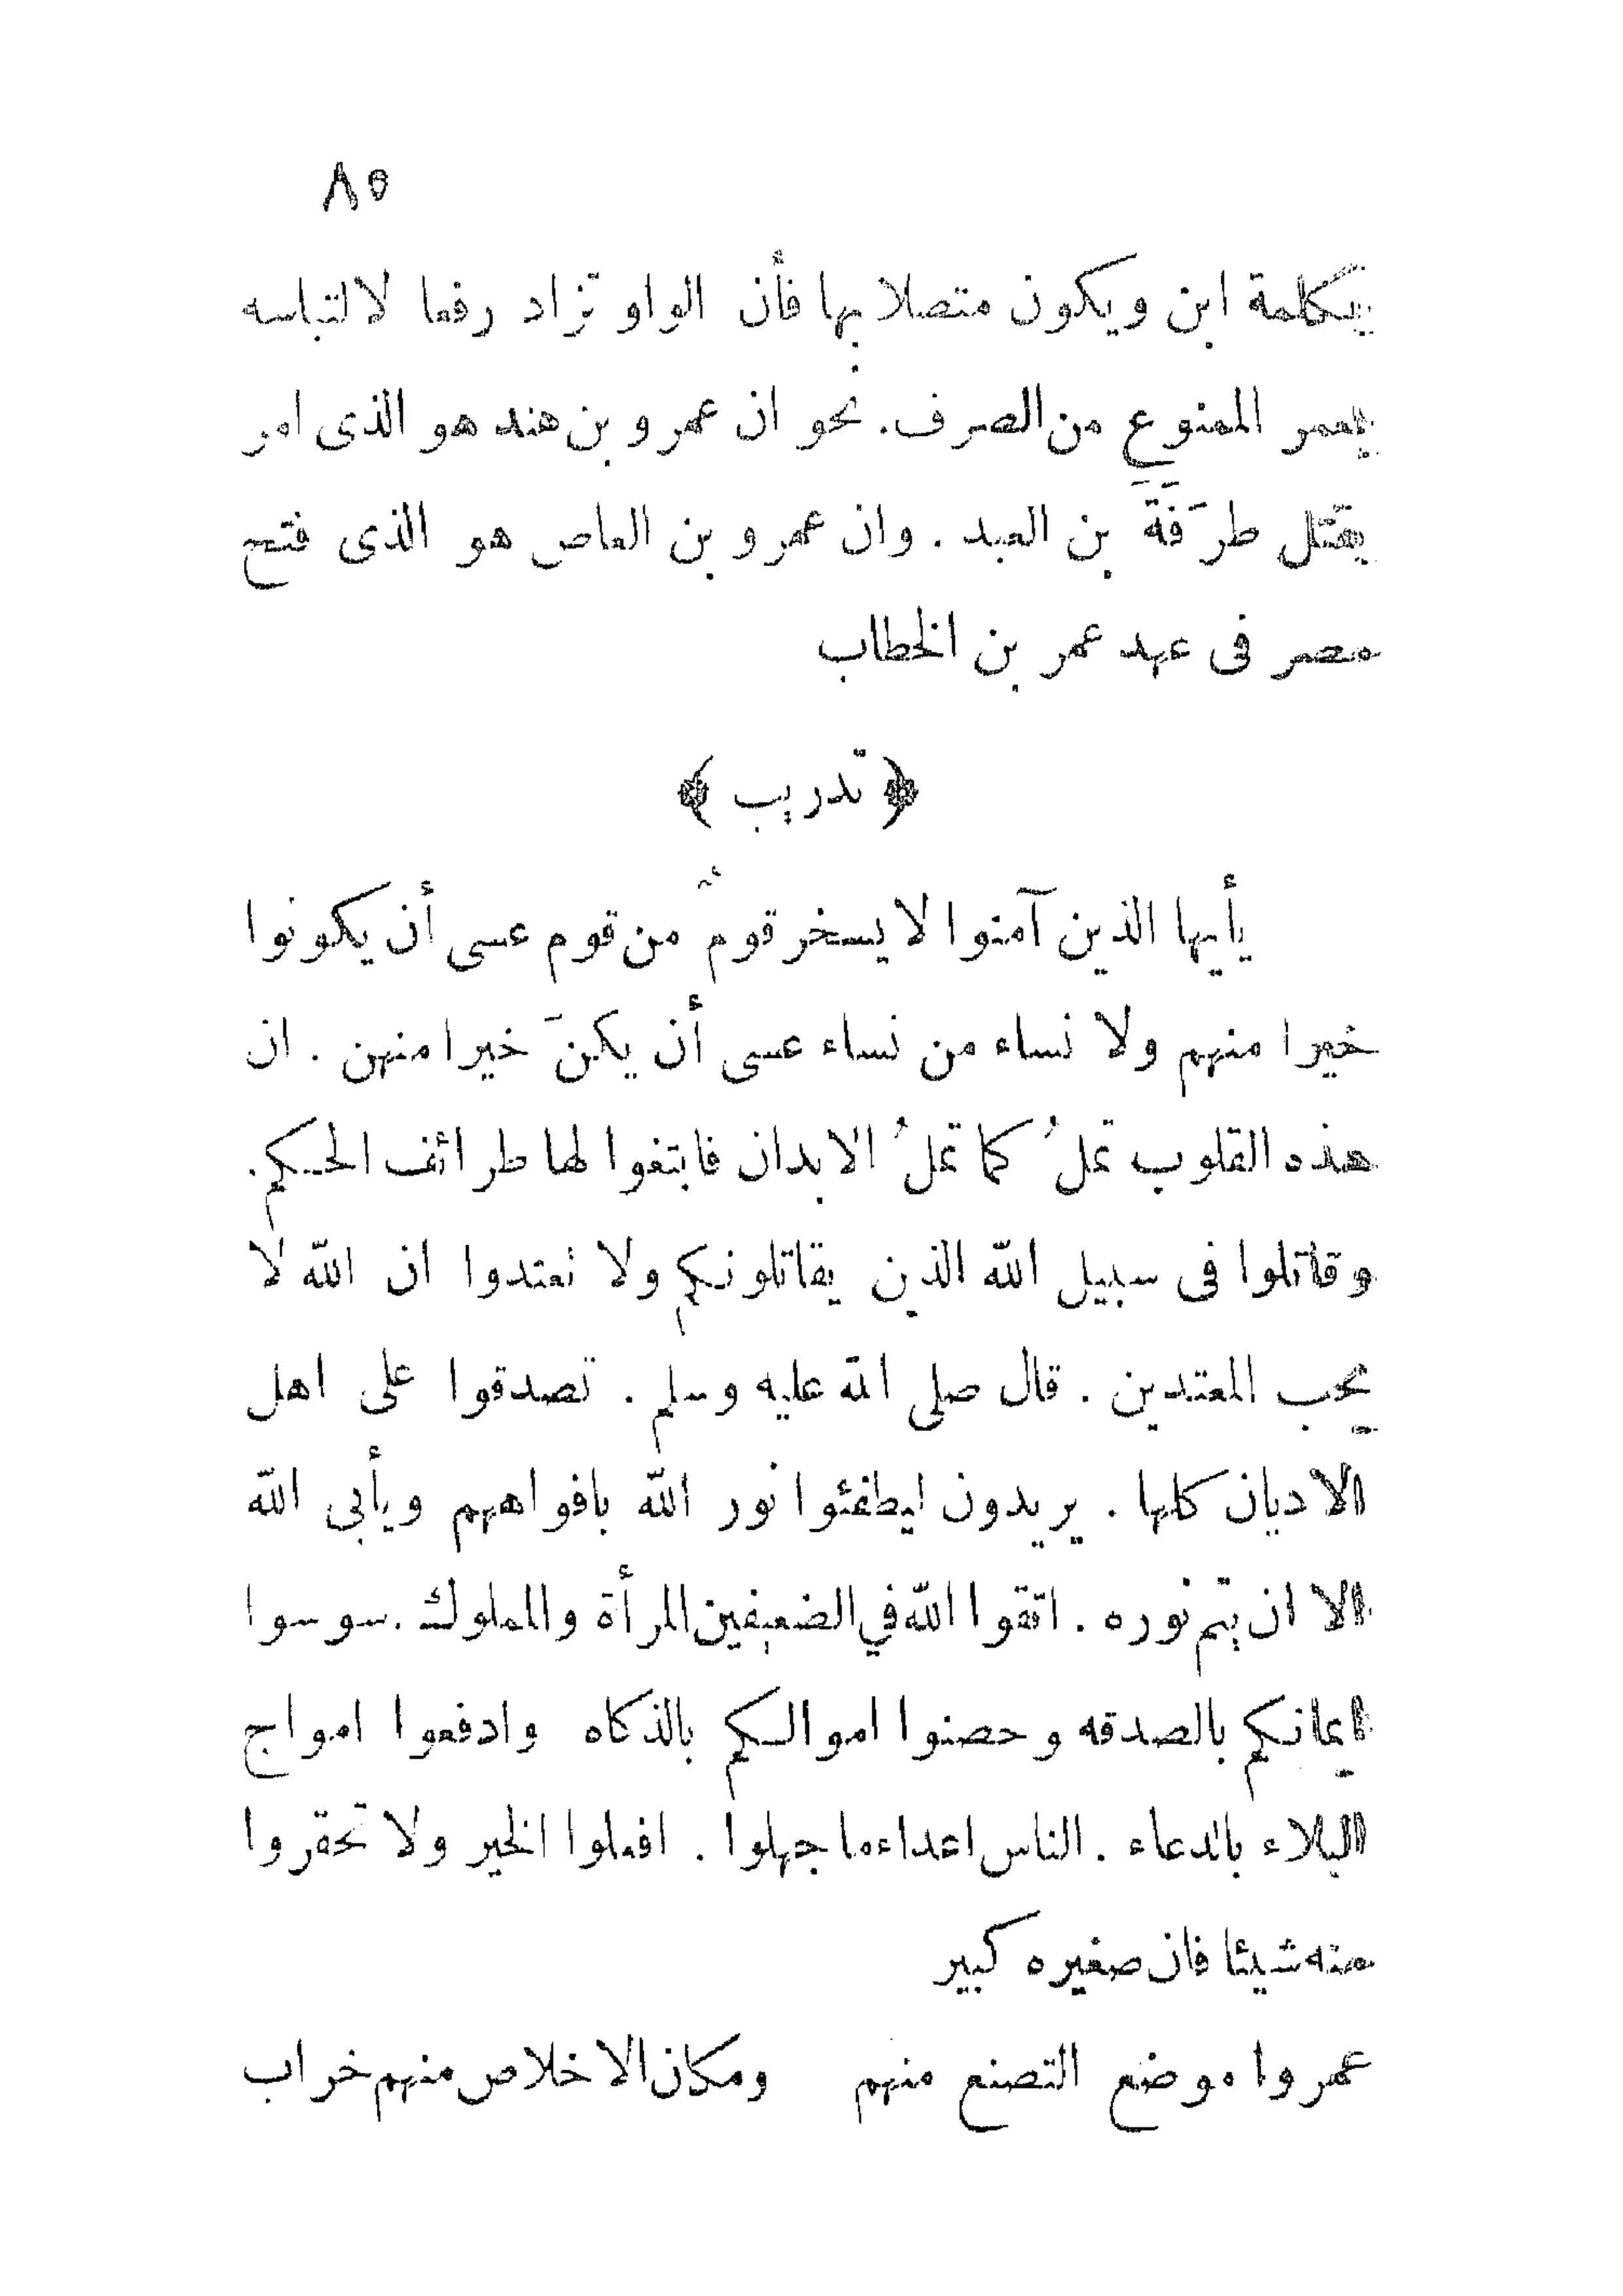 ٨٥
بكلمة ابن ويكون متصلا بها فأن الواو تزاد رفعا لالتباسه
بعمر الممنوع من الصرف. نحو ان عمرو بن هند هو الذى امر
بقتل طرَفَةَ بن العبد . وان عمرو بن العاص هو الذى فتح
مصر فى عهد عمر بن الخطاب
﴿ تدريب ﴾
يأيها الذين آمنوا لا يسخر قومٌ من قوم عسى أن يكونوا
خيرا منهم ولا نساء من نساء عسى أن يكنَ خيرا منهن . ان
هذه القلوب تملُ كما تملُ الابدان فابتغوا لها طرائف الحكم.
وقاتلوا فى سبيل الله الذين يقاتلونكم ولا تعتدوا ان الله لا
يحب المعتدين . قال صلى الله عليه وسلم . تصدقوا على اهل
الاديان كلها . يريدون ليطفئوا نور الله بافواههم ويأبى الله
الا ان يتم نوره . اتقوا الله في الضعيفين المرأة والمملوك . سوسوا
ايمانكم بالصدقه وحصنوا اموالكم بالذكاه وادفعوا امواج
البلاء بالدعاء . الناس اعداء ما جهلوا . افعلوا الخير ولا تحقروا
منه شيئا فان صغيره كبير
عمروا موضع التصنع منهم ومكان الاخلاص منهم خراب